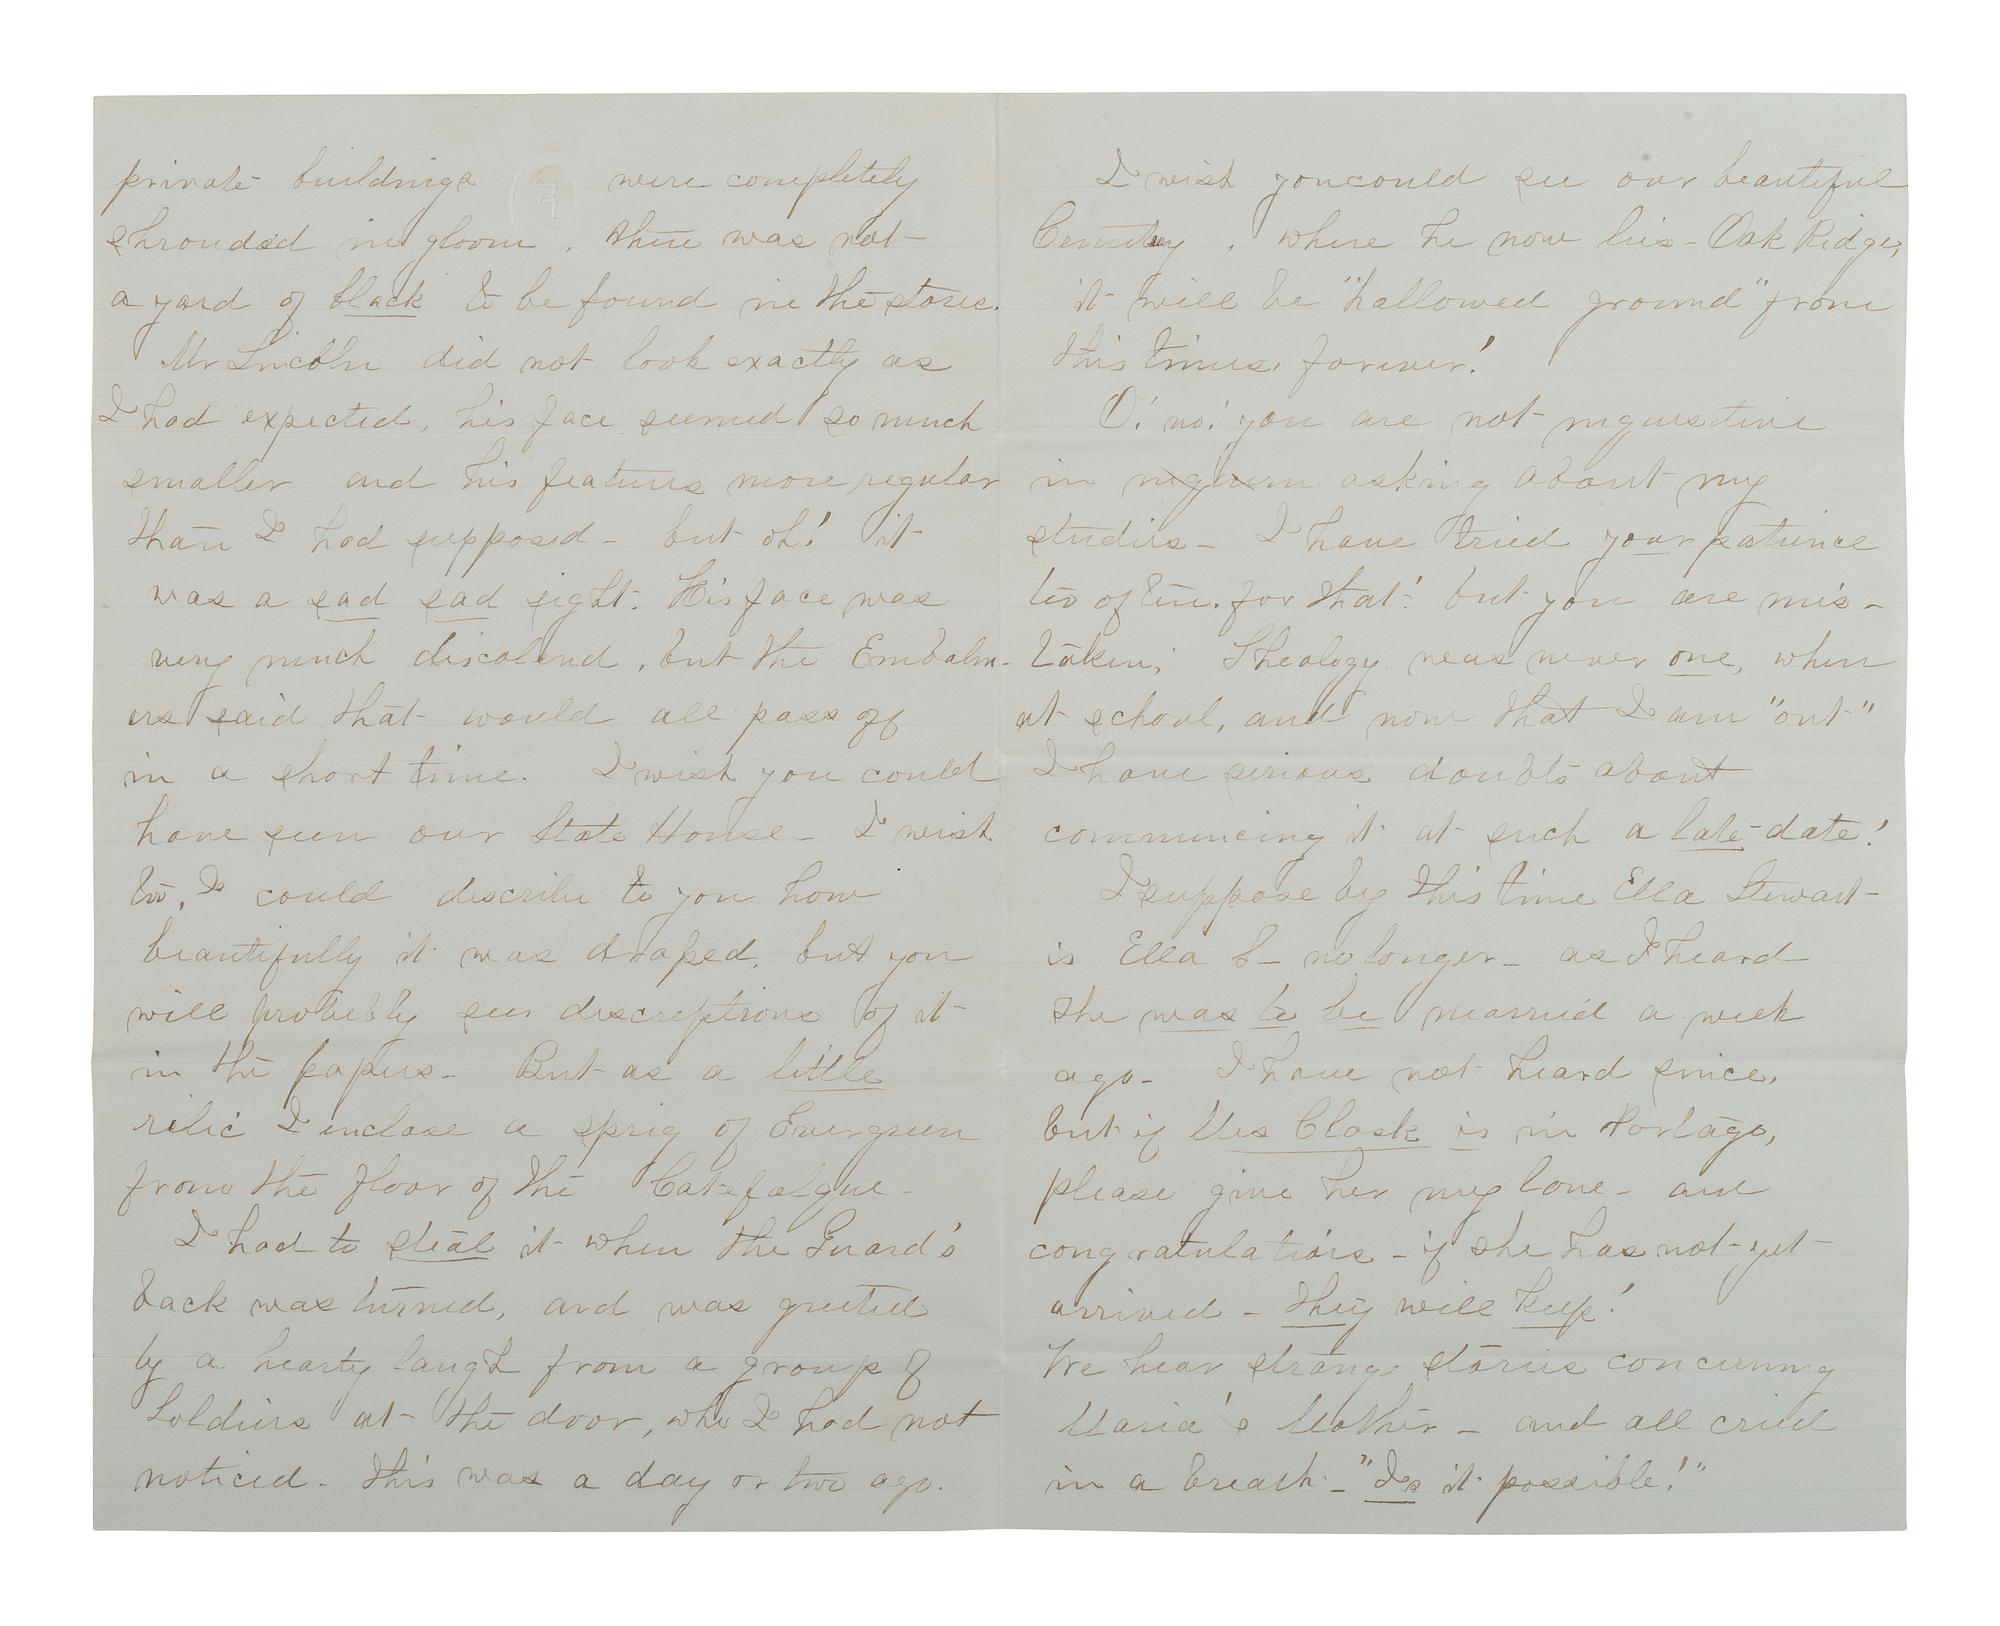 private buildings were completely
shrouded in gloom, there was not
a yard of black to be found in the stores.
Mr Lincoln did not look exactly as
I had expected, his face seemed so much
smaller and his features more regular
than I had supposed - but oh! it
was a sad sad sight. His face was
very much discolored, but the Embalm-
ers said that would all pass off
in a short time. I wish you could
have seen our State House - I wish
too, I could describe to you how
beautifully it was draped, but you
will probably see descriptions of it
in the papers - But as a little
relic I enclose a sprig of Evergreen
from the floor of the Catefalque -
I had to steal it when the Guard's
back was turned, and was greeted
by a hearty laugh from a group of
Soldiers at the door, who I had not
noticed - This was a day or two ago.
I wish you could see our beautiful
Cemetery, where he now lies - Oak Ridge,
it will be "hallowed ground" from
this time, forever!
O! no! you are not inquisitive
in asking about my
studies - I have tried your patience
too often for that! but you are mis-
taken; Theology was never one, when
at school, and now that I am "out"
I have serious doubts about
commencing it at such a late date!
I suppose by this time Ella Stewart
is Ella S - no longer - as I heard
she was to be married a week
ago - I have not heard since,
but if Mrs Clark is in Portage,
please give her my love - and
congratulations - if she has not yet
arrived - they will keep!
We hear strange stories concerning
Maria's Mother - and all cried
in a breath - "Is it possible!"